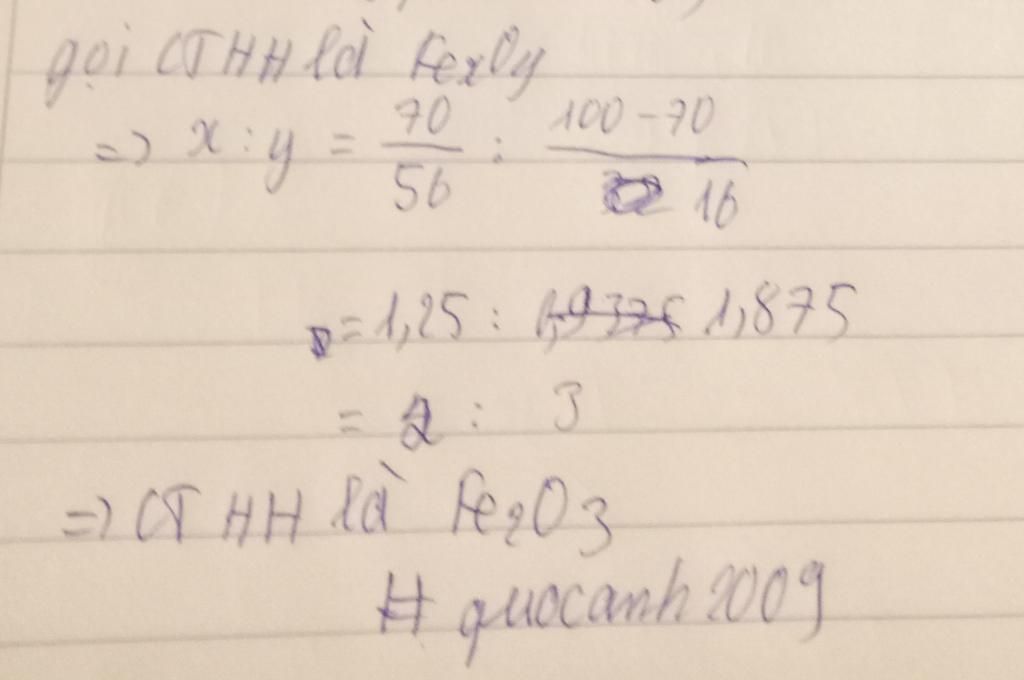 gọi CTHH là FexOy
=> x : y = 70/56 : 100-70/16
= 1,25 : 1,9375 1,875
= 2 : 3
=> CTHH là Fe2O3
# quocanh2009